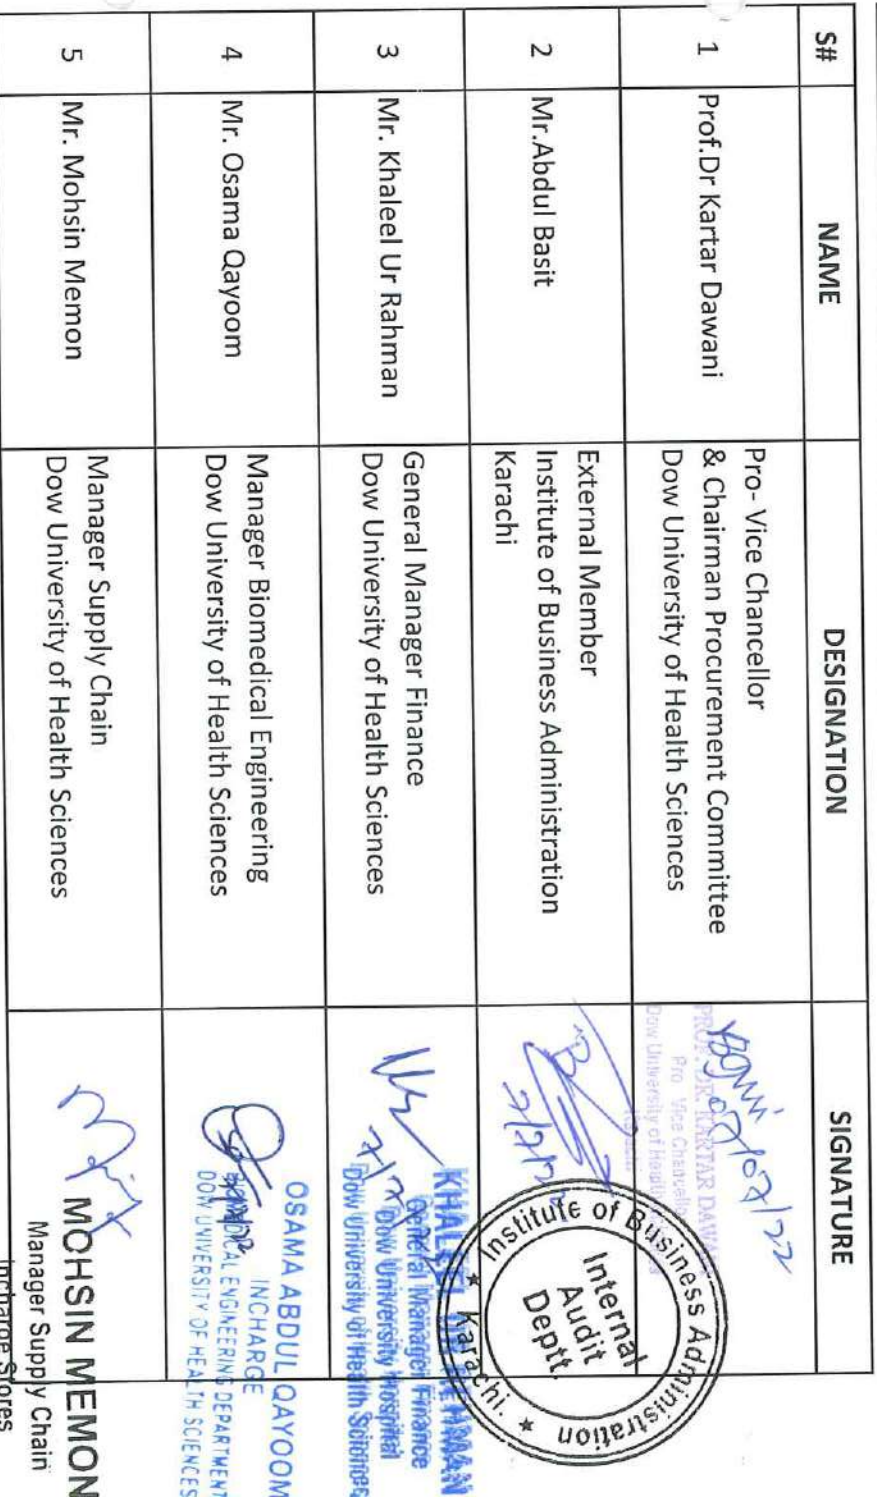 S# NAME DESIGNATION SIGNATURE
1 Prof.Dr Kartar Dawani Pro- Vice Chancellor
& Chairman Procurement Committee
Dow University of Health Sciences
PROF. DR. KARTAR DAWANI
Pro Vice Chancellor
Dow University of Health
Karachi
07/07/22
2 Mr.Abdul Basit External Member
Institute of Business Administration
Karachi
7/7/22
Institute of Business Administration
★ Karachi. ★
Internal
Audit
Deptt.
3 Mr. Khaleel Ur Rahman General Manager Finance
Dow University of Health Sciences
General Manager Finance
Dow University Hospital
Dow University of Health Sciences
4 Mr. Osama Qayoom Manager Biomedical Engineering
Dow University of Health Sciences
OSAMA ABDUL QAYOOM
INCHARGE
BIOMEDICAL ENGINEERING DEPARTMENT
DOW UNIVERSITY OF HEALTH SCIENCES
5 Mr. Mohsin Memon Manager Supply Chain
Dow University of Health Sciences
MOHSIN MEMON
Manager Supply Chain
Incharge Stores